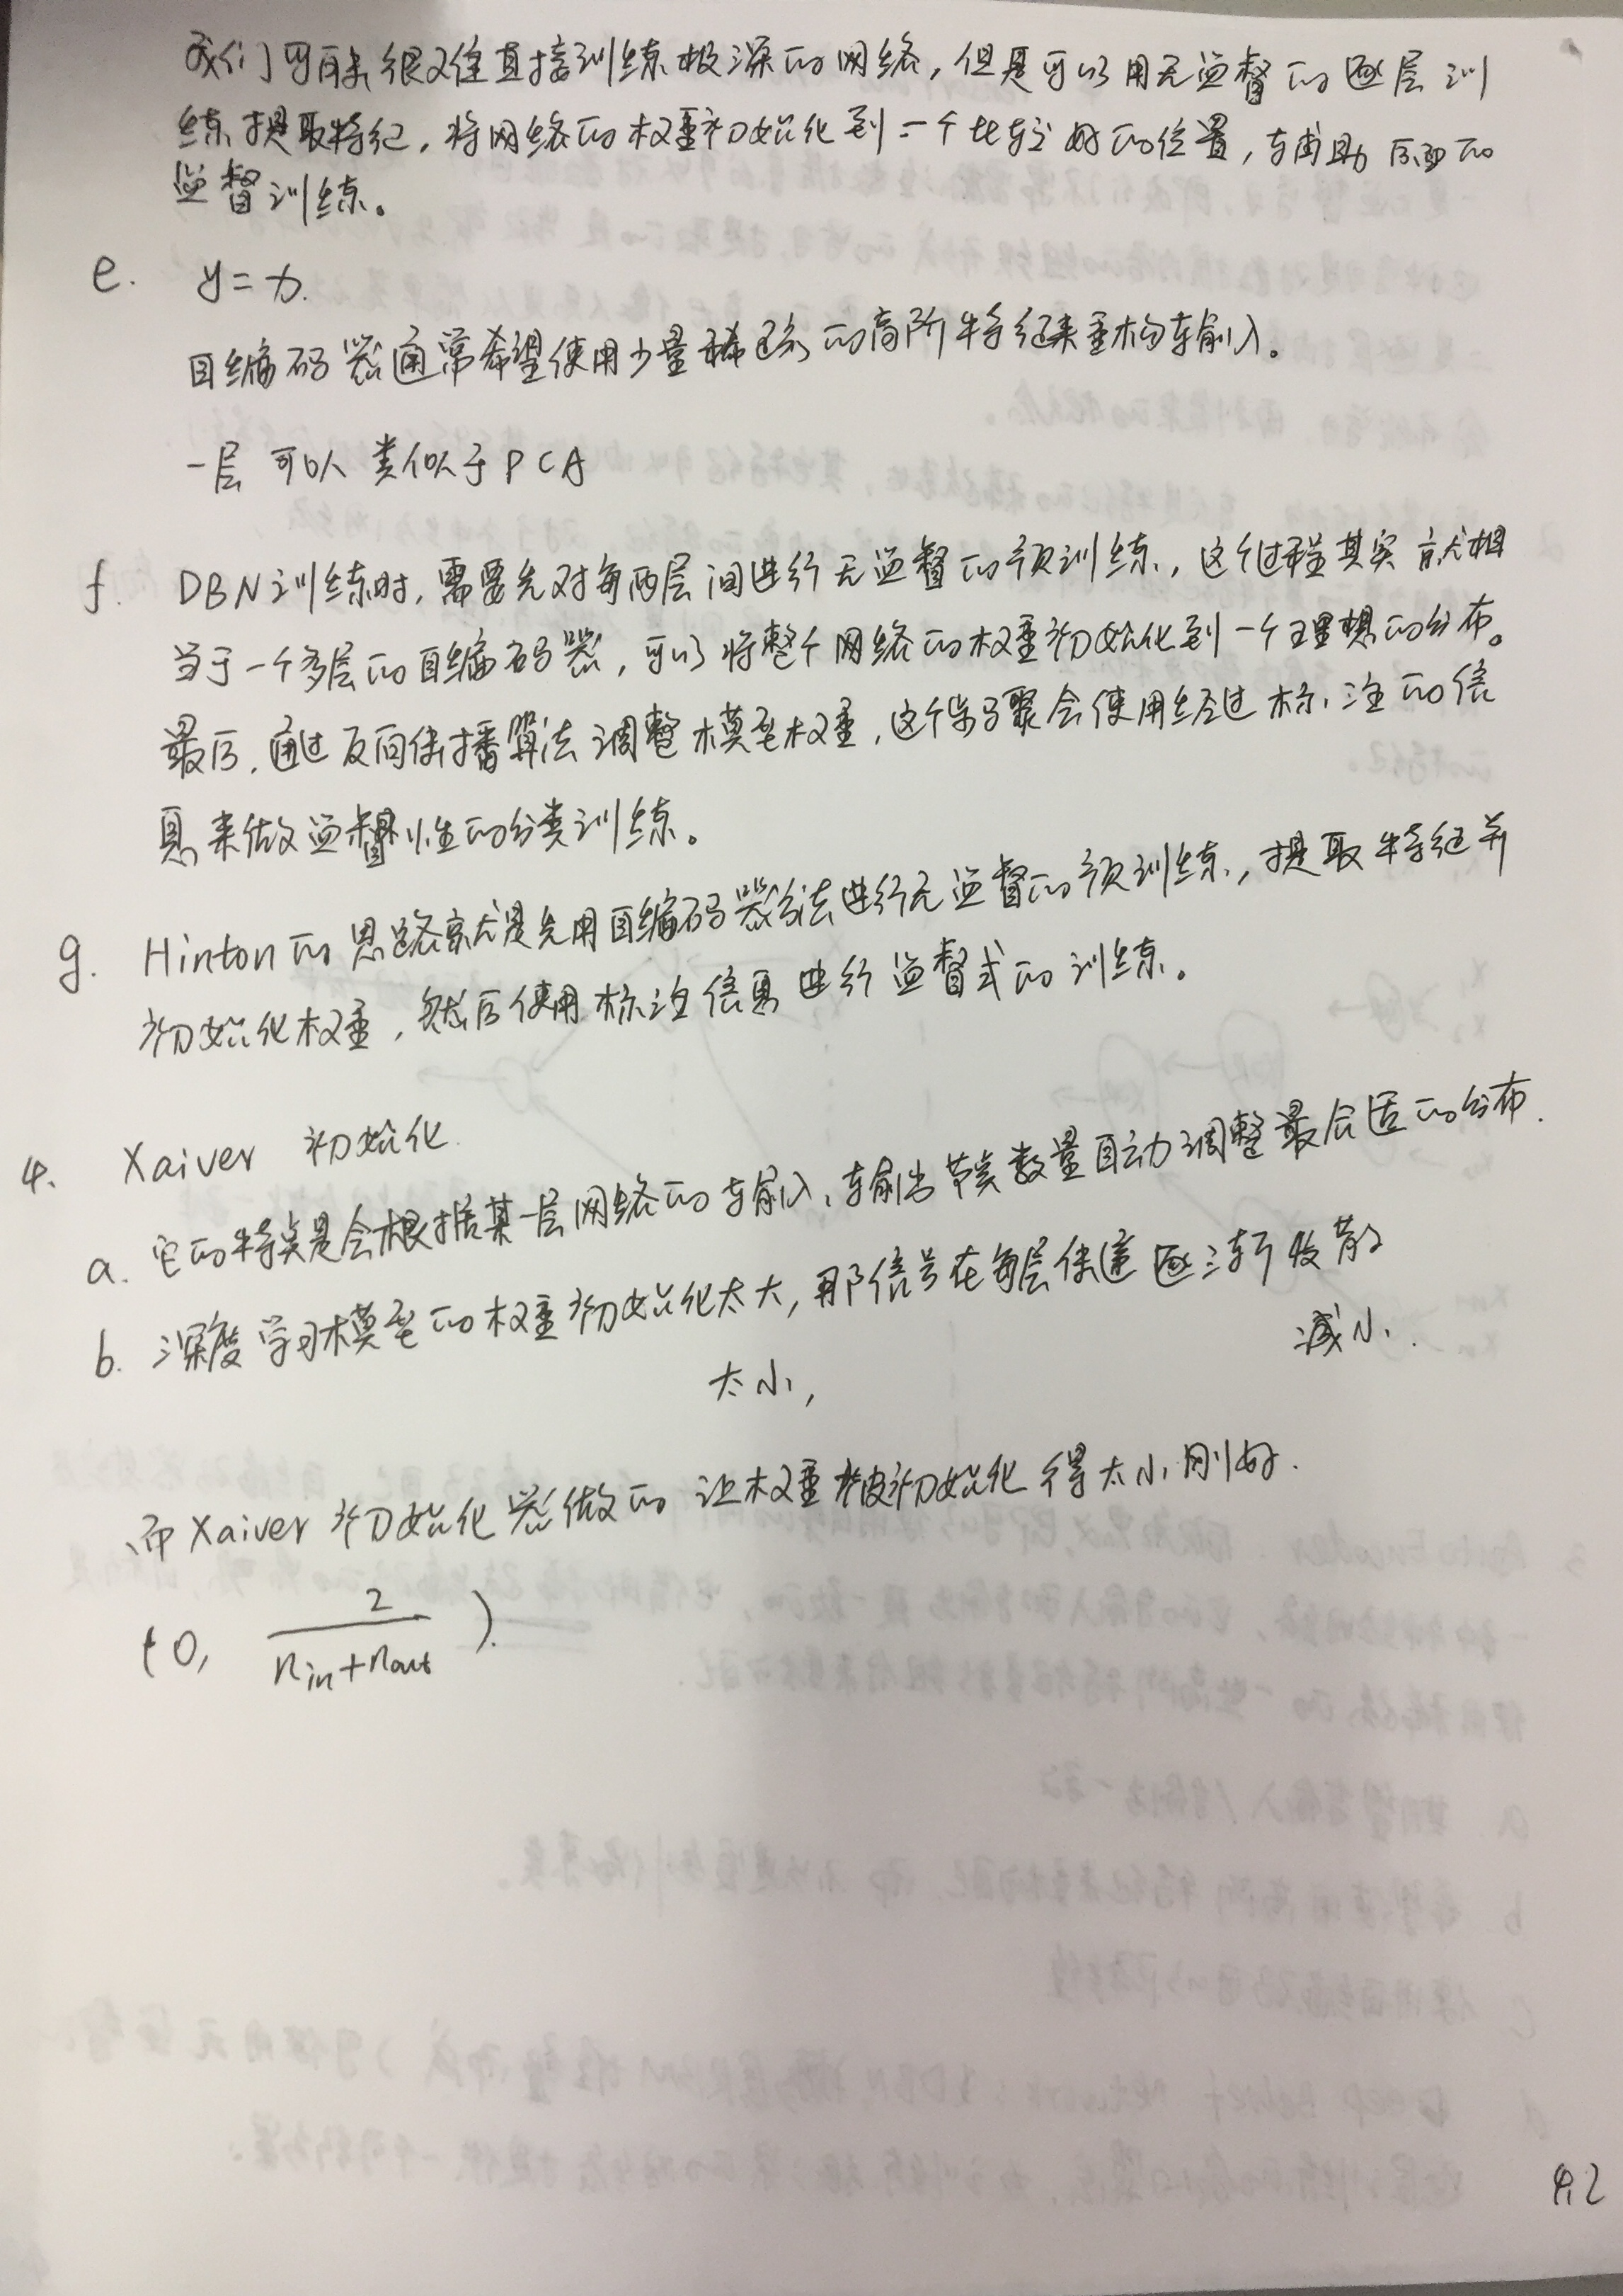 我们可能很难直接训练极深的网络，但是可以用无监督的逐层训
练提取特征，将网络的权重初始化到一个比较好的位置，辅助后面的
监督训练。
e. y = x.
自编码器通常希望使用少量稀疏的高阶特征来重构输入。
一层可以类似于PCA
f. DBN训练时，需要先对每两层间进行无监督的预训练，这个过程其实就相
当于一个多层的自编码器，可以将整个网络的权重初始化到一个理想的分布。
最后，通过反向传播算法调整模型权重，这个步骤会使用经过标注的信
息来做监督性的分类训练。
g. Hinton的思路就是先用自编码器方法进行无监督的预训练，提取特征并
初始化权重，然后使用标注信息进行监督式的训练。
4. Xaiver 初始化.
a. 它的特点是会根据某一层网络的输入、输出节点数量自动调整最合适的分布.
b. 深度学习模型的权重初始化太大，那信号在每层传递逐渐放散
太小， 减小.
而Xaiver初始化器做的让权重被初始化得大小刚好.
(0, 2/(n_in+n_out)).
4.2